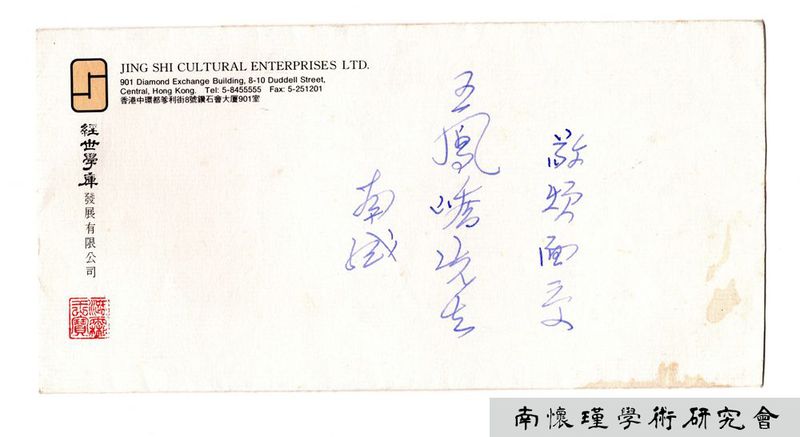 JING SHI CULTURAL ENTERPRISES LTD.
901 Diamond Exchange Building, 8-10 Duddell Street,
Central, Hong Kong. Tel: 5-8455555 Fax: 5-251201
香港中環都爹利街8號鑽石會大廈901室
經世學庫發展有限公司
敬煩面交
王鳳嶠先生
南緘
南懷瑾學術研究會